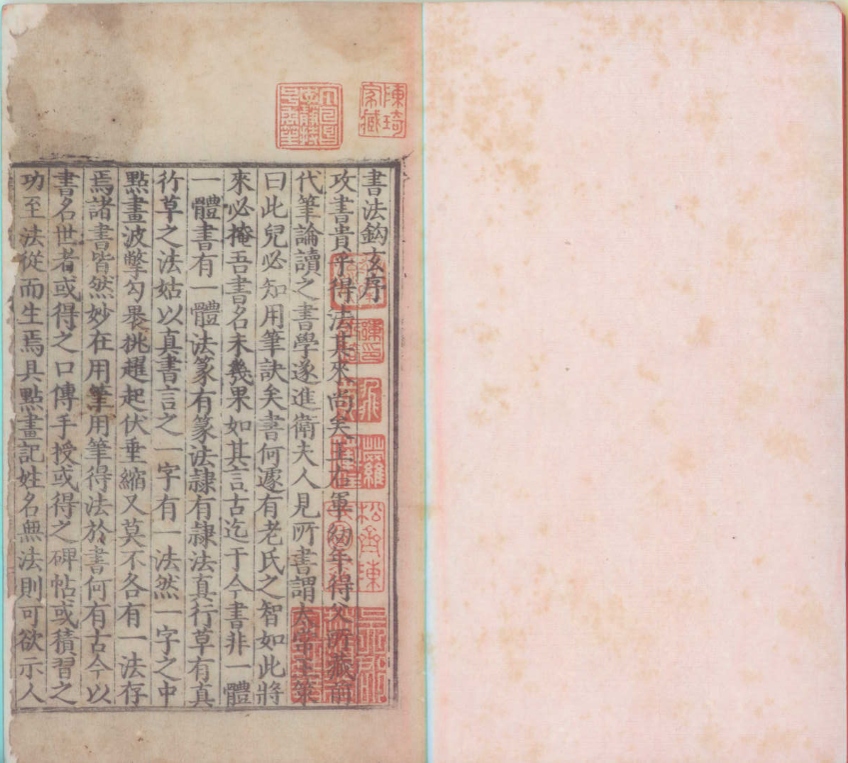 書法鈎玄序
攻書貴乎得法其來尚矣王右軍幼年得父所藏前
代筆論讀之書學遂進衛夫人見所書謂太常王策
曰此兒必知用筆訣矣書何遽有老氏之智如此將
來必掩吾書名未幾果如其言古迄于今書非一體
一體書有一體法篆有篆法隷有隷法真行草有真
行草之法姑以真書言之一字有一法然一字之中
點畫波撆勾裊挑趯起伏垂縮又莫不各有一法存
焉諸書皆然妙在用筆用筆得法於書何有古今以
書名世者或得之口傳手授或得之碑帖或積習之
功至法從而生焉具點畫記姓名無法則可欲示人
陳琦家藏